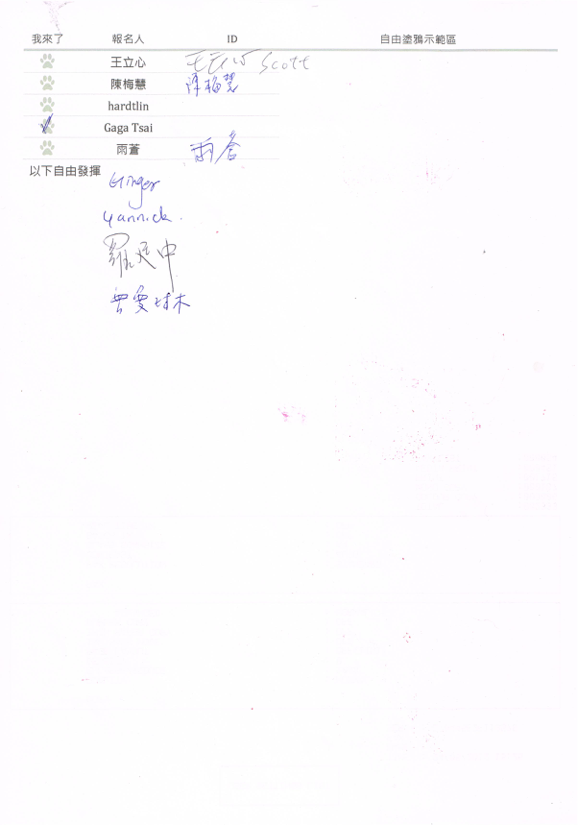 我來了 報名人 ID 自由塗鴉示範區
王立心 王立心 Scott
陳梅慧 陳梅慧
hardtlin
Gaga Tsai
雨蒼 雨蒼
以下自由發揮
Ginger
Yannick.
羅 中
曾愛